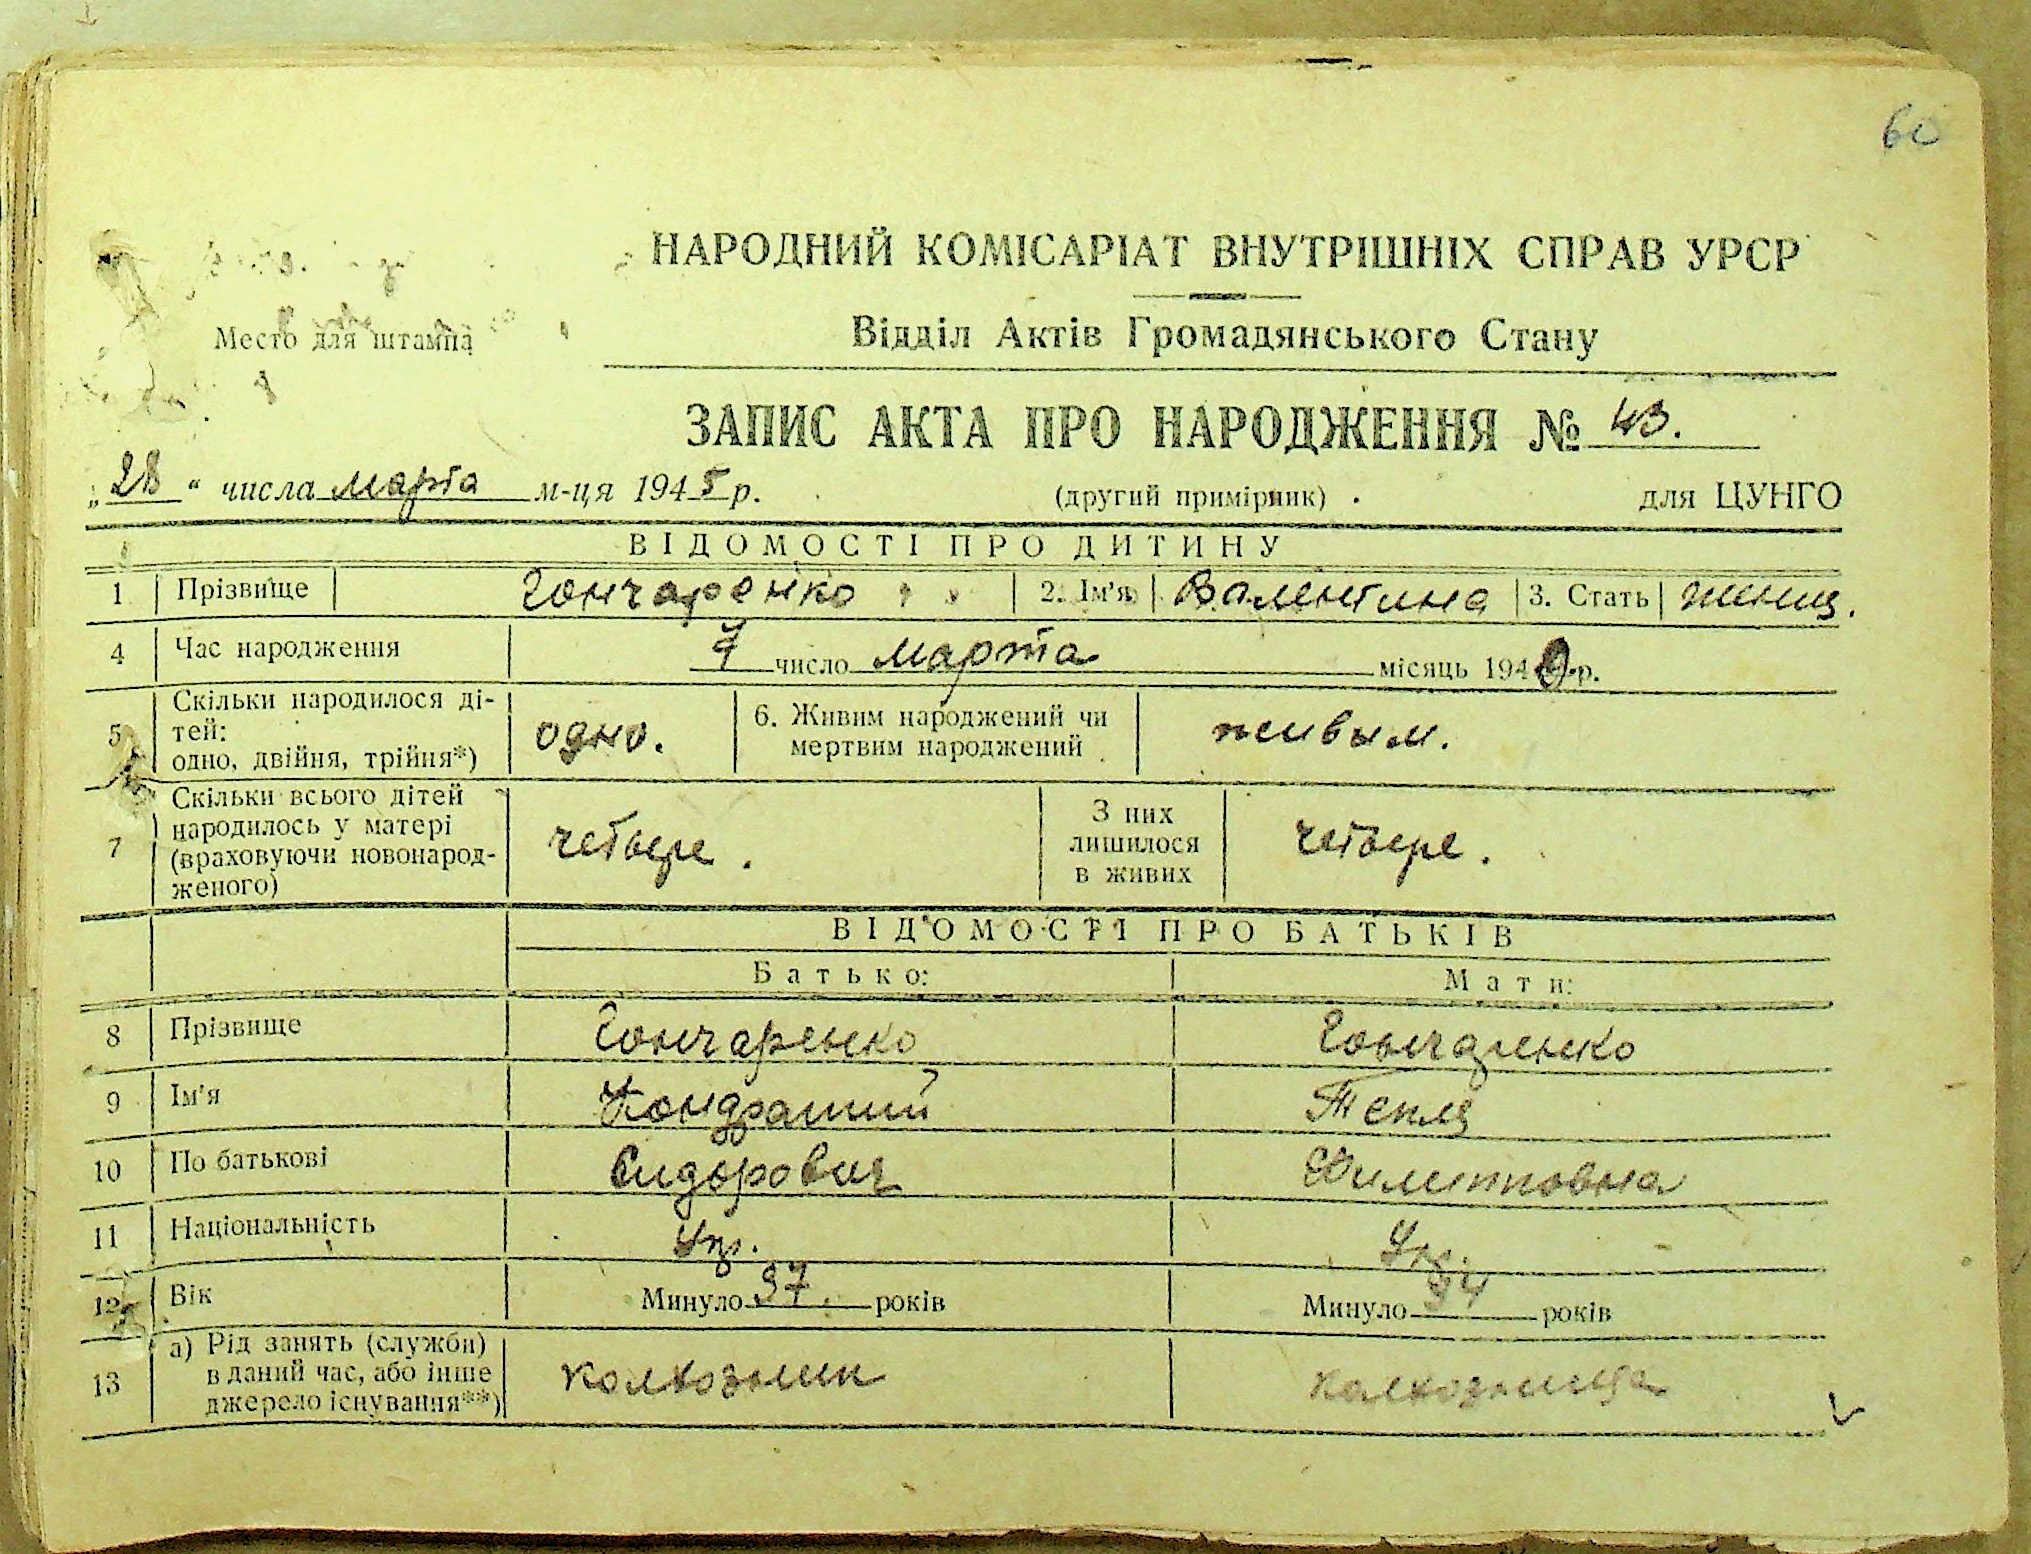 60
НАРОДНИЙ КОМІСАРІАТ ВНУТРІШНІХ СПРАВ УРСР
Место для штампа
Відділ Актів Громадянського Стану
ЗАПИС АКТА ПРО НАРОДЖЕННЯ № 43.
„28“ числа марта м-ця 1945 р. (другий примірник) для ЦУНГО
ВІДОМОСТІ ПРО ДИТИНУ
1 Прізвище Гончаренко 2. Ім'я Валентина 3. Стать женщ.
4 Час народження число марта місяць 194 р.
5 Скільки народилося ді-
тей:
одно, двійня, трійня*) одно. 6. Живим народжений чи
мертвим народжений живым.
7 Скільки всього дітей
народилось у матері
(враховуючи новонарод-
женого) четвере. З них
лишилося
в живих четвере.
ВІДОМОСТІ ПРО БАТЬКІВ
Батько: Мати:
8 Прізвище Гончаренко Гончаренко
9 Ім'я Кондратий Текля
10 По батькові Сидорович Филипповна
11 Національність Укр. Ук.
12 Вік Минуло 37. років Минуло 34 років
13 а) Рід занять (служби)
в даний час, або інше
джерело існування**) колхозник колхозница